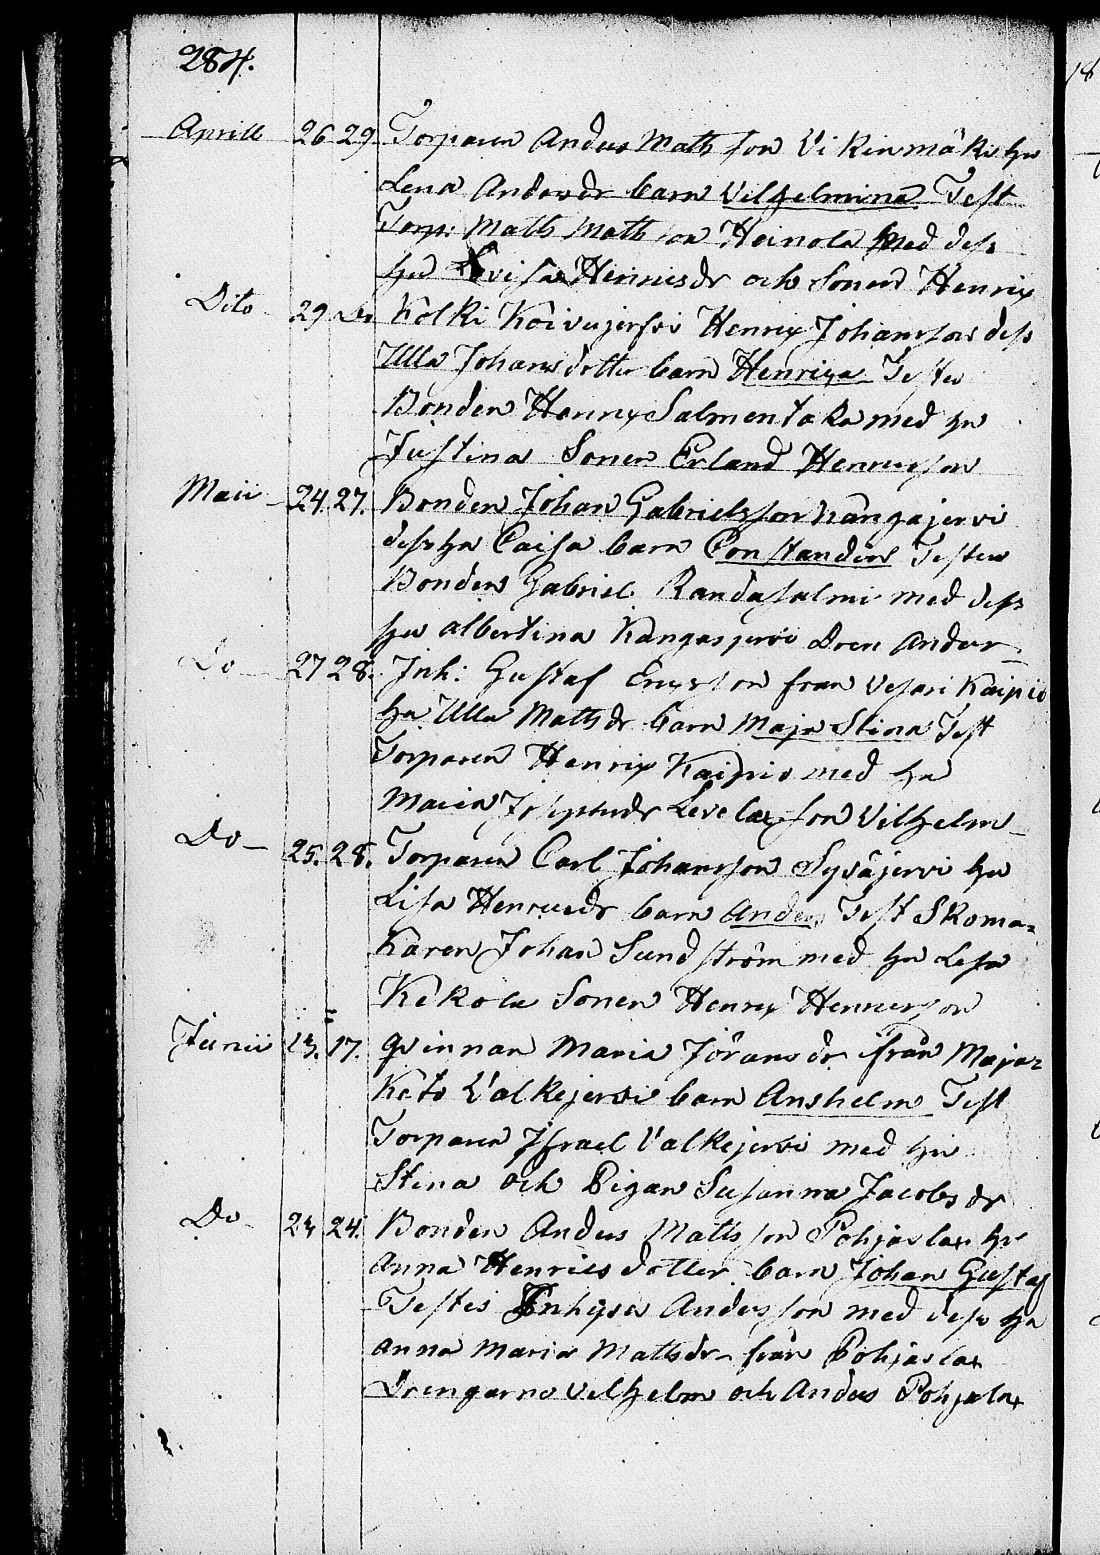 284.
Aprill 26 29. Torparen Anders Mats son Vikinmäki hu
Lena Andersdr barn Vilhelmina Test
Torp: Matts Matts son Heinola med dess
hu Lovisa Henricsdr och Sonen Henrix
Dito 29 Do Kolki Koivujerfvi Henrix Johansson dess
Ulla Johansdotter barn Henrixa Testes
Bonden Henrix Salmentaka med hu
Justina Sonen Erland Henricsson
Maii 24. 27. Bonden Johan Gabrielsson Kangajervi
dess hu Caisa barn Constandin Testes
Bonden Gabriel Randasalmi med dess
hu Albertina Kangasjervi Dren Anders
Do 27 28. Inh: Gustaf Ericsson från Vesari Kaipio
hu Ulla Mattsdr barn Maja Stina Test
Torparen Henrix Kaipio med hu
Maria Josephsdr Levelax son Vilhelm
Do 25. 28. Torparen Carl Johansson Sysäjervi hu
Lisa Henricsdr barn Anders Test Skoma=
karen Johan Sundström med hu Lisa
Kekola Sonen Henrix Henricsson
Junii 13. 17. Qvinnan Maria Jöransdr från Maja=
Keto Valkejervi barn Anshelm Test
Torparen Israel Valkejervi med hu
Stina och Pigan Susanna Jacobsdr
Do 23 24. Bonden Anders Matts son Pohjaslax hu
Anna Henricsdotter barn Johan Gustaf
Testes Inhyses Andersson med dess hu
Anna Maria Mattsdr från Pohjaslax
Drengarne Vilhelm och Anders Pohjalax